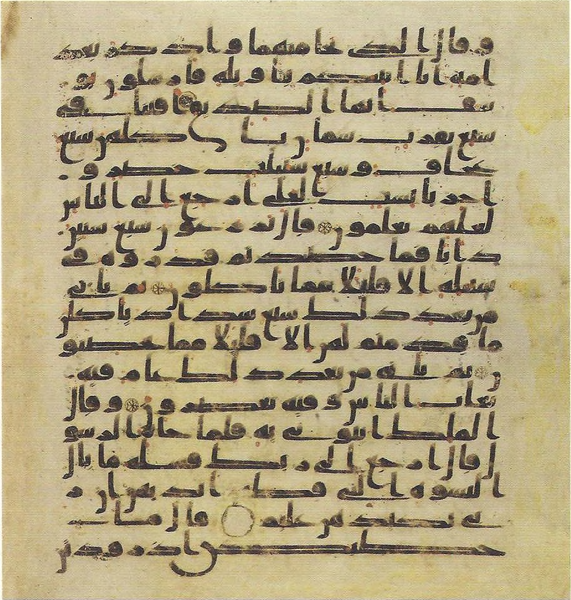 وقال الذي نجا منهما وادكر بعد
امة انا انبئكم بتاويله فارسلون يو
سف ايها الصديق افتنا في
سبع بقرت سمان ياكلهن سبع
عجاف وسبع سنبلت خضر و
اخر يابست لعلي ارجع الى الناس
لعلهم يعلمون قال تزرعون سبع سنين
دابا فما حصدتم فذروه في
سنبله الا قليلا مما تاكلون ثم ياتي
من بعد ذلك سبع شداد ياكلن
ما قدمتم لهن الا قليلا مما تحصنو
ن ثم ياتي من بعد ذلك عام فيه
يغاث الناس وفيه يعصرون وقال
الملك ائتوني به فلما جاه الرسو
ل قال ارجع الى ربك فسله ما بال
النسوة التي قطعن ايديهن ان ر
بي بكيدهن عليم قال ما
خطبكن اذ رودتن